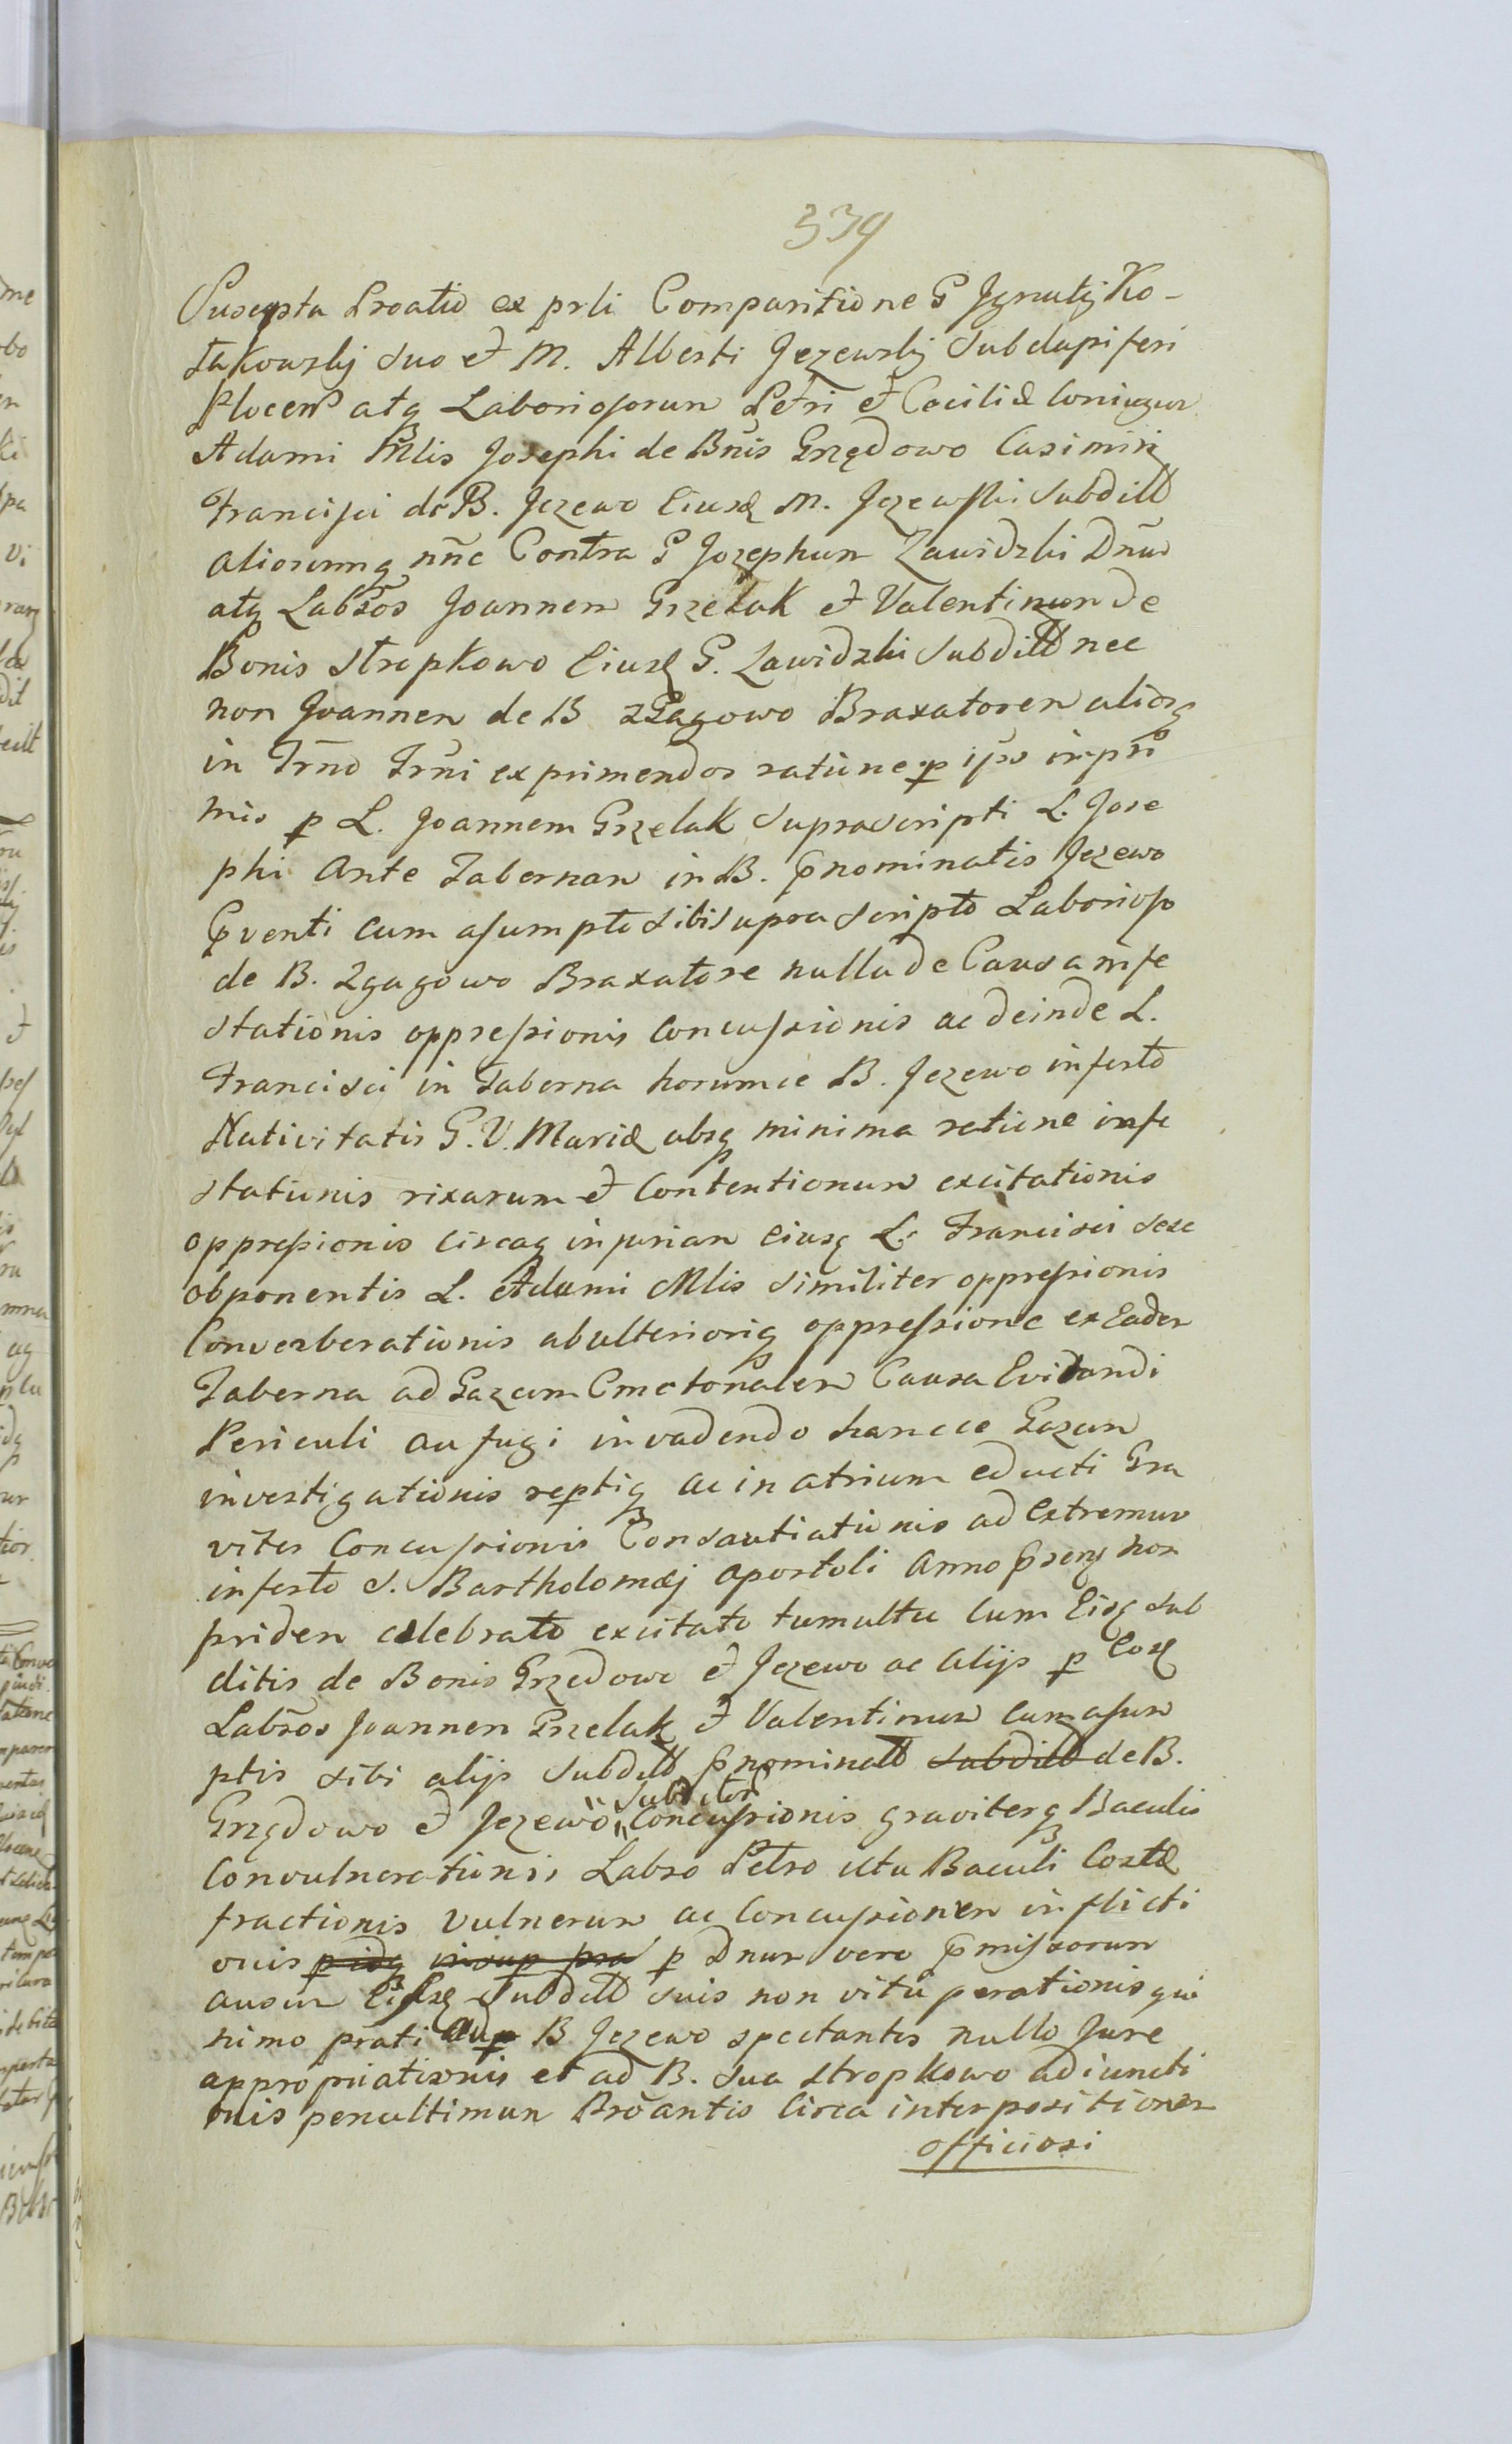 339
Suscepta Proatio ex prli Comparitione G Ignatij Ko-
łakowskij suo et M. Alberti Jezewskij Subdapiferi
Plocens atq Laboriosorum Petri et Ceciliæ Coniugum
Adami Mlis Josephi de Bnis Grzędowo Casimiri
Francisci de B. Jezewo Eiusd M. Jezewski Subditt
aliorumq nnc Contra G Jozephum Zawidzki Dnum
atq Labros Joannem Grzelak et Valentinum de
Bonis Stropkowo Eiusd G. Zawidzki Subditt nec
non Joannem de B Zgagowo Braxatorem aliosq
in Trno Trni exprimendos ratione p ipso inpri
mis p L. Joannem Grzelak Suprascripti L. Jose
phi Ante Tabernam in B. pnominatis Jezewo
pventi cum asumpto sibi supra scripto Laborioso
de B. Zgagowo Braxatore nulla de Causa infe
stationis oppressionis Concussionis ac deinde L.
Francisci in Taberna horumce B. Jezewo in festo
Nativitatis G. V. Mariæ absq minima ratione infe
stationis rixarum et Contentionum excitationis
oppressionis circaq injuriam Eiusd L. Francisci sese
obponentis L. Adami Mlis similiter oppressionis
Converberationis ab ulteriorig oppressione ex Eadem
Taberna ad Gazam Cmetonalem Causa Evitandi
Periculi aufugi invadendo hancce Gazam
investigationis reptiq ac in atrium educti Gra
viter Concussionis Consautiationis ad extremum
in festo S. Bartholomæj Apostoli Anno psenti non
pridem celebrato excitato tumultu Cum Eisd sub
ditis de Bonis Grzedowo et Jezewo ac alijs p Eosd
Labros Joannem Grzelak et Valentinum cum asum
ptis sibi alijs Subditt pnominatt subditt de B.
Grzędowo et Jezewo Subditor Concussionis graviterq Baculis
Convulnerationis Labro Petro ictu Baculi Costæ
fractionis Vulnerum ac Concussionem inflicti
onis p idq insup pra p Dnum vero pmissorum
ausum Eiusd Subditt suis non vituperationis qui
nimo prati ad B Jezewo spectantis nullo Jure
appropriationis et ad B. sua Stropkowo adiuncti
onis penultimum Proantis Circa interpositionem
officiosi